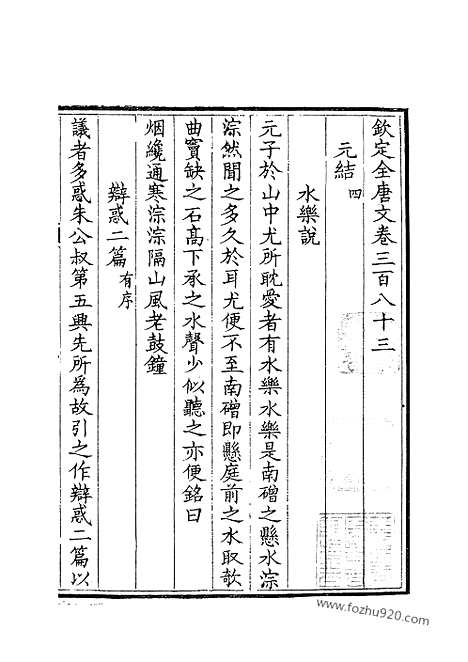 欽定全唐文卷三百八十三
元結 四
水樂說
元子於山中尤所耽愛者有水樂水樂是南磳之懸水淙
淙然聞之多久於耳尤便不至南磳即懸庭前之水取欹
曲竇缺之石高下承之水聲少似聽之亦便銘曰
烟纔通寒淙淙隔山風老鼓鐘
辯惑二篇 有序
議者多惑朱公叔第五興先所為故引之作辯惑二篇以
www.fozhu920.com